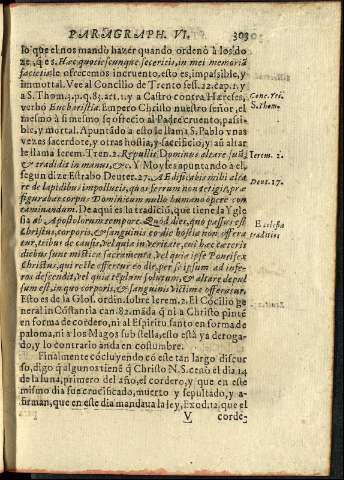 PARAGRAPH. VI. 303
lo que el nos mandò hazer quando ordenò à los do-
ze, q̃ es. Hæc quotiescunque feceritis, in mei memoriã
facietis le ofrecemos incruento, esto es, impassible, y
immortal. Vee al Concilio de Trento sess. 22. cap. 1. y
a S. Thom. 3. p. q. 83. art. 1. y a Castro contra Hæreses,
verbò Eucharistia. Empero Christo nuestro señor, el
mesmo à si mesmo se ofrecio al Padre cruento, passi-
ble, y mortal. Apuntãdo a esto se llama S. Pablo vnas
vezes sacerdote, y otras hostia, y sacrificio, y aũ altar
le llama Ierem. Tren. 2. Repulit Dominus altare suũ,
& tradidit in manu, &c. Y Moyses apuntando a el,
segun dize Estrabo Deuter. 27. Ædificabis mihi alta-
re de lapidibus impollutis, quos ferrum non tetigit, præ
figurabat corpus Dominicum nullo humano opere con-
taminandum. De aqui es la tradiciõ, que tiene la Ygle
sia ab Apostolorum tempore. Quòd dies, quo passus est
Christus, corporis, & sanguinis eo die hostia non offera
tur, tribus de causis, vel quia in veritate, cui hæc cæteris
diebus sunt mistica sacramenta, vel quia ipse Pontifex
Christus, qui velle offerretur eo die, per se ipsum ad infe-
ros descendit, vel quia templum solutum, & altare depul
sum est, in quo corporis, & sanguinis victima offeratur.
Esto es de la Glos. ordin. sobre Ierem. 2. El Cõcilio ge
neral in Cõstantia can. 82. mãda q̃ ni a Christo pintẽ
en forma de cordero, ni al Espiritu santo en forma de
paloma, ni a los Magos sub stella, esto està ya deroga-
do, y lo contrario anda en costumbre.
Finalmente cõcluyendo cõ este tan largo discur
so, digo q̃ algunos tienẽ q̃ Christo N. S. cenò el dia 14
de la luna, primero del año, el cordero, y que en este
mismo dia fue crucificado, muerto y sepultado, y a-
firman, que en este dia mandaua la ley, Exod. 12. que el
V corde-
Conc. Tri.
S. Thom.
Ierem. 2.
Deut. 27.
Ecclesia
traditio: